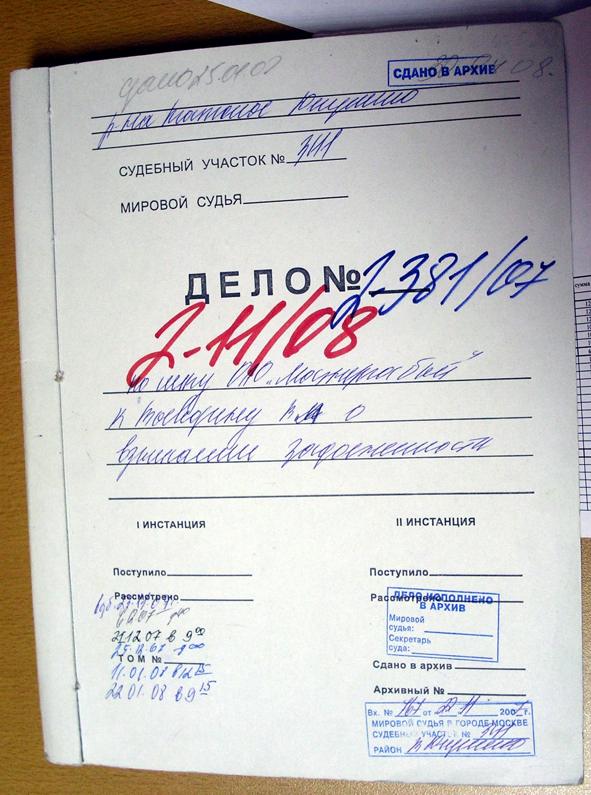 СДАНО В АРХИВ
р-на
СУДЕБНЫЙ УЧАСТОК № 311
МИРОВОЙ СУДЬЯ
ДЕЛО № 2-381/07
2-11/08
по иску ОАО "Мосэнергосбыт"
к
взыскании задолженности
I ИНСТАНЦИЯ
II ИНСТАНЦИЯ
Поступило
Поступило
Рассмотрено
Рассмотрено
ДЕЛО ИСПОЛНЕНО
В АРХИВ
Мировой
судья:
Секретарь
суда:
21.12.07 в 9 00
25.12.07
ТОМ №
11.01.08 в 12 15
22.01.08 в 9 15
Сдано в архив
Архивный №
Вх. № 161 от 22 11 2007 г.
МИРОВОЙ СУДЬЯ В ГОРОДЕ МОСКВЕ
СУДЕБНЫЙ УЧАСТОК № 311
РАЙОН
сумма